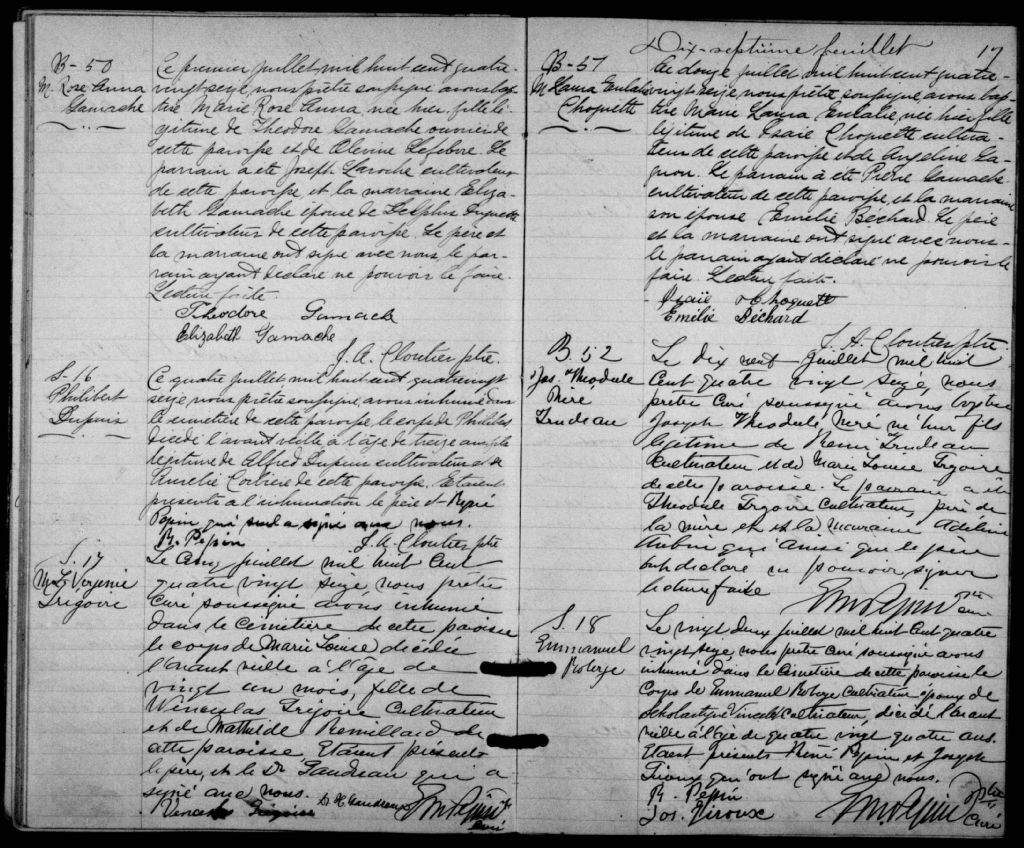 B-50
M. Rose Anna
Gamache
Ce premier juillet mil huit cent quatre-
vingt seize, nous prêtre soussigné avons bap-
tisé Marie Rose Anna, née hier, fille lé-
gitime de Théodore Gamache ouvrier de
cette paroisse et de Olevine Lefebvre. Le
parrain a été Joseph Laroche cultivateur
de cette paroisse et la marraine Eliza-
beth Gamache épouse de Delphis
cultivateur de cette paroisse. Le père et
la marraine ont signé avec nous le par-
rain ayant déclaré ne pouvoir le faire.
Lecture faite.
Théodore Gamach
Elizabeth Gamache
J. A. Cloutier ptre.
S. 16
Philibert
Dupuis
Ce quatre juillet mil huit cent quatrevingt
seize, nous prêtre soussigné, avons inhumé dans
le cimetière de cette paroisse, le corps de Philibert
décédé l'avant veille à l'âge de treize ans, fils
légitime de Alfred Dupuis cultivateur et de
Aurélie de cette paroisse. Etaient
présents à l'inhumation le père et René
Pepin qui seul a signé avec nous.
R. Pepin J. A. Cloutier ptre
S. 17
M. Ls Virginie
Grégoire
Le cinq juillet mil huit cent
quatre vingt seize nous prêtre
curé soussigné avons inhumé
dans le cimetière de cette paroisse
le corps de Marie Louise décédée
l'avant veille à l'âge de
vingt un mois, fille de
Winceslas Grégoire cultivateur
et de Mathilde Remillard de
cette paroisse. Etaient présents
le père, et le Dr Gaudreau qui a
signé avec nous.
Grégoire Dr Gaudreau Pepin ptre
curé
Dix-septième feuillet 17
B-51
M. Laura Eulalie
Choquette
Ce douze juillet mil huit cent quatre-
vingt seize, nous prêtre soussigné, avons bap-
tisé Marie Laura Eulalie, née hier, fille
légitime de Isaïe Choquette cultiva-
teur de cette paroisse et de Angeline Ga-
gnon. Le parrain a été Pierre Gamache
cultivateur de cette paroisse, et la marraine
son épouse Emelie Béchard. Le père
et la marraine ont signé avec nous-
le parrain ayant déclaré ne pouvoir le
faire. Lecture faite.
Isaïe Choquett
Emilie Béchard
J. A. Cloutier ptre
B. 52
Jos. Théodule
Néré
Trudeau
Le dix neuf juillet mil huit
cent quatre vingt seize, nous
prêtre curé soussigné avons baptisé
Joseph Théodule, Néré né hier fils
légitime de Remi Trudeau
cultivateur et de Marie Louise Grégoire
de cette paroisse. Le parrain a été
Théodule Grégoire cultivateur, père de
la mère et la marraine Adeline
Aubin qui ainsi que le père
ont déclaré ne pouvoir signer
lecture faite
Pepin ptre
curé
S. 18
Emmanuel
Roberge
Le vingt deux juillet mil huit cent quatre
vingt, seize, nous prêtre curé soussigné avons
inhumé dans le cimetière de cette paroisse le
corps de Emmanuel Roberge cultivateur époux de
Scholastique cultivateur, décédé l'avant
veille à l'âge de quatre vingt quatre ans.
Etaient présents René Pepin et Joseph
Giroux qui ont signé avec nous.
R. Pepin
Jos. Giroux Pepin ptre
Curé